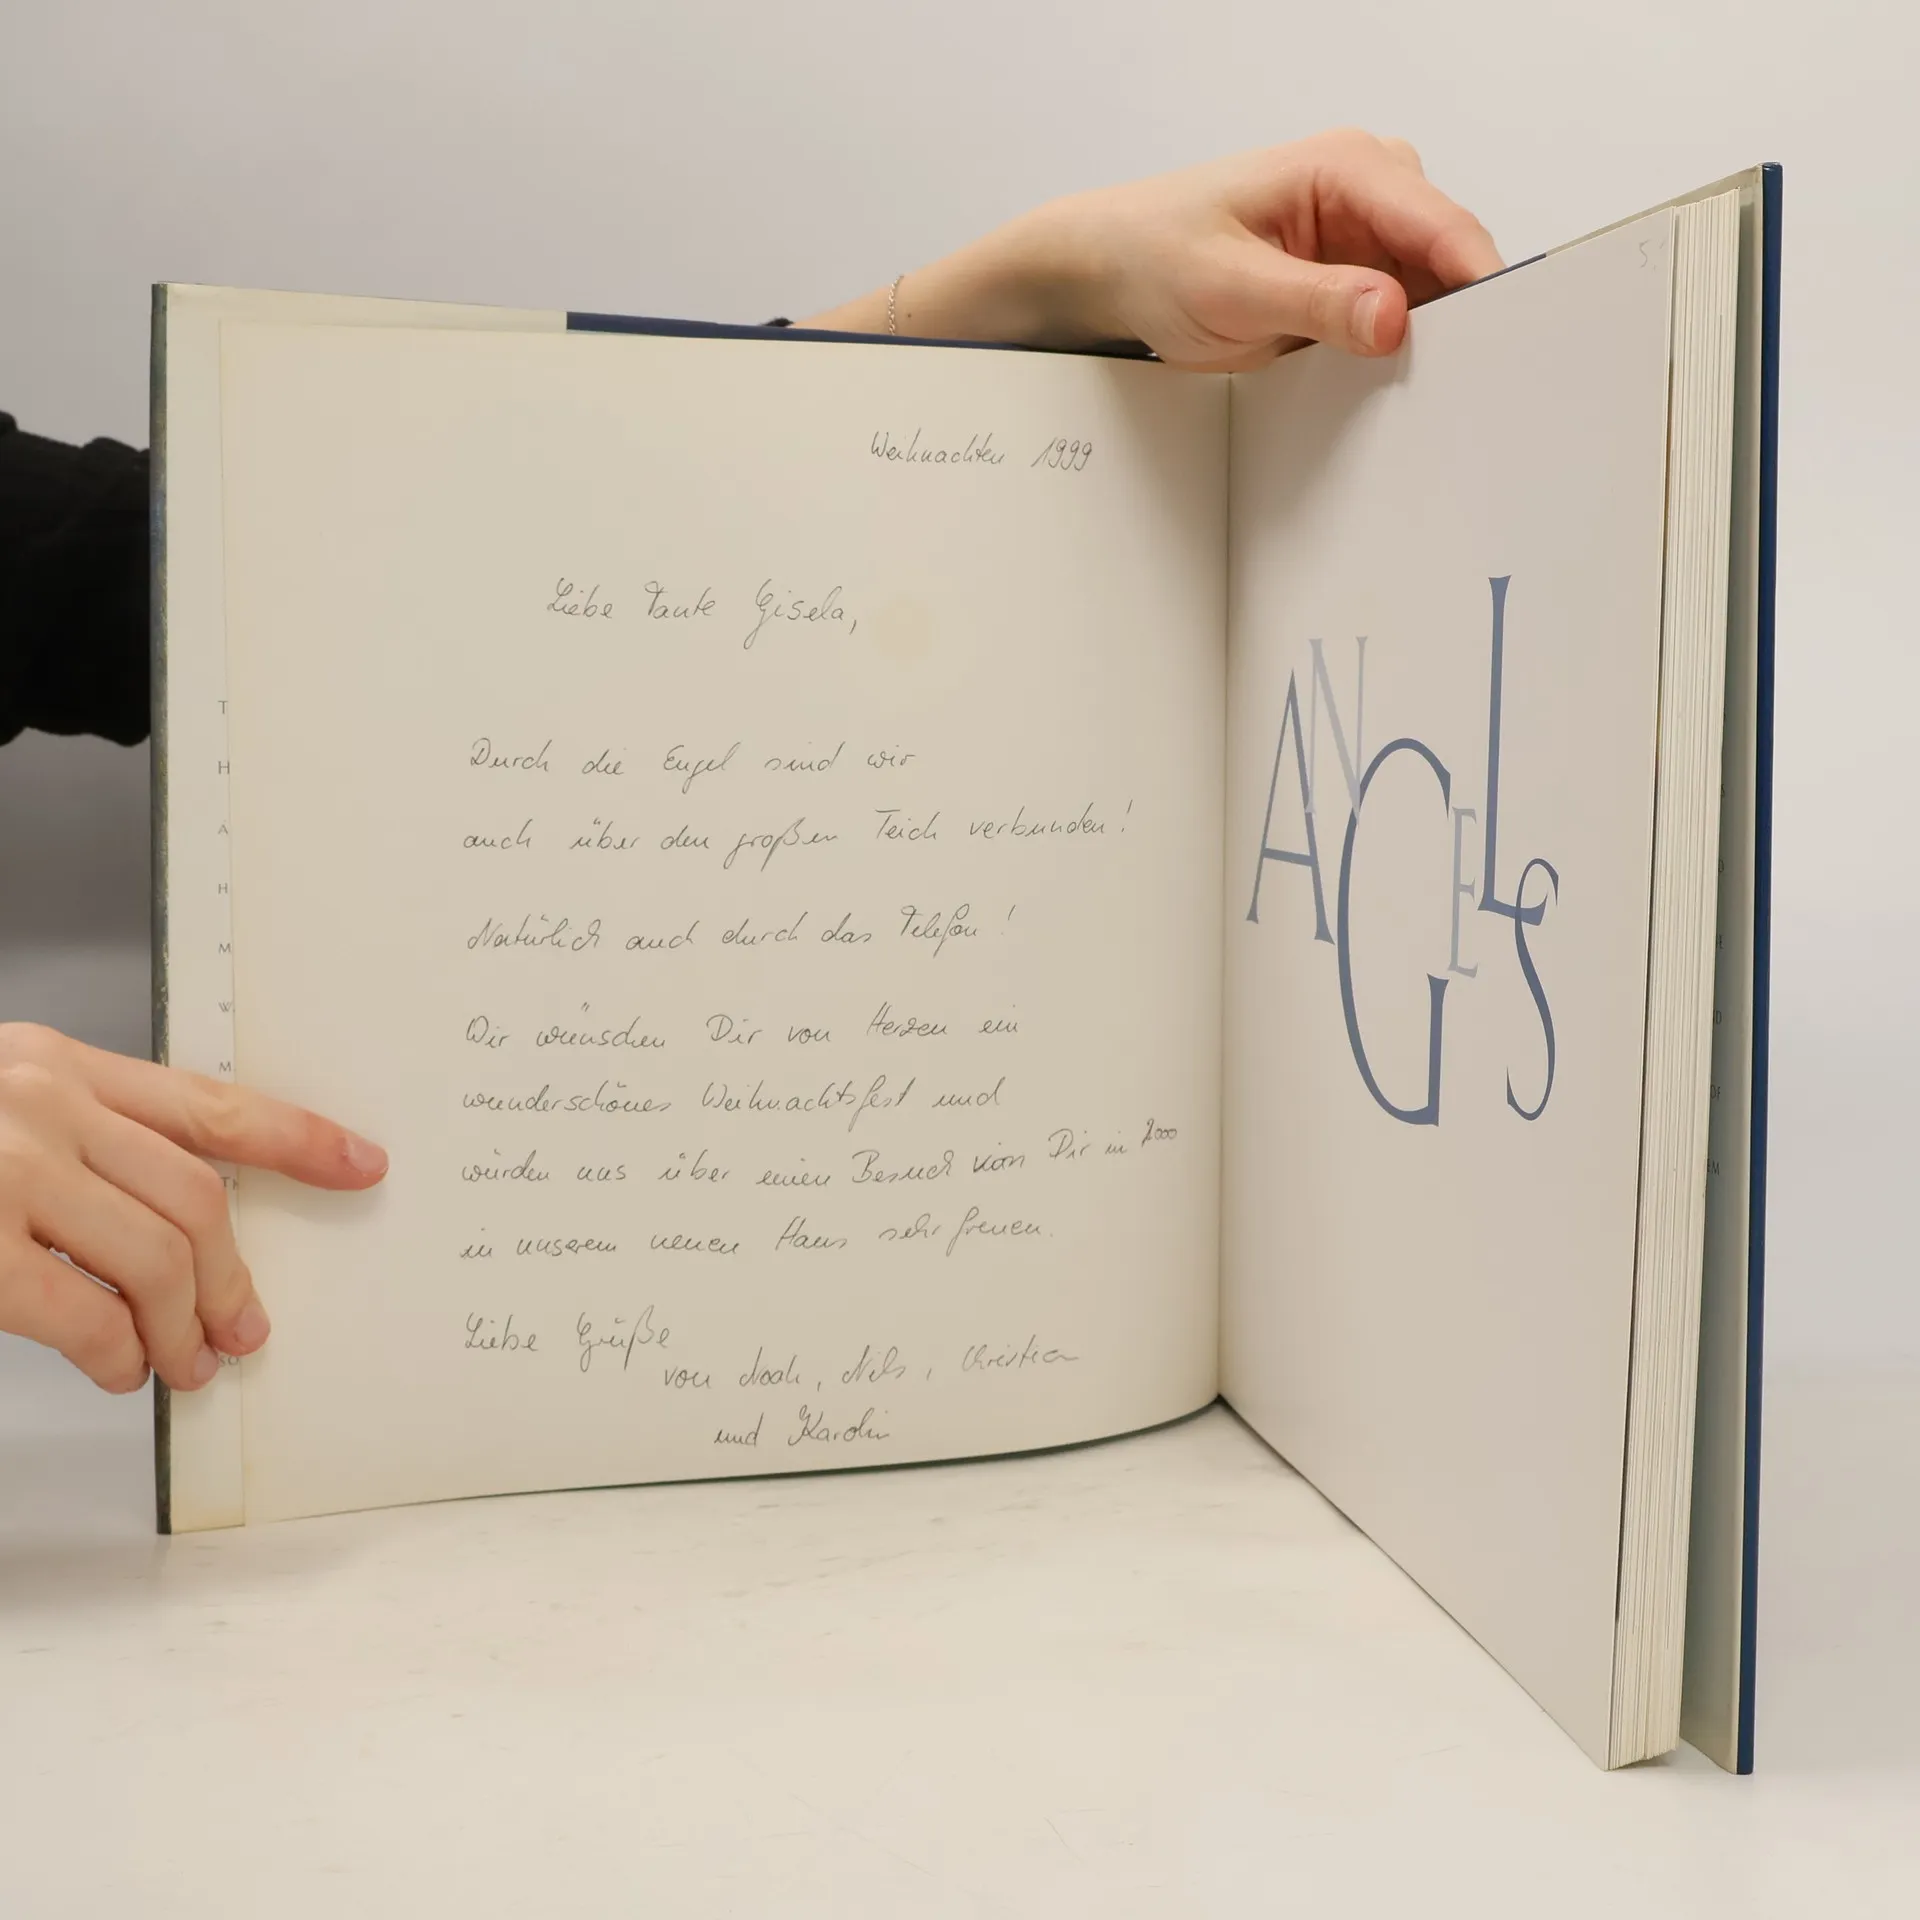 Weihnachten 1999
Liebe Tante Gisela,
Durch die Engel sind wir
auch über den großen Teich verbunden!
Natürlich auch durch das Telefon!
Wir wünschen Dir von Herzen ein
wunderschönes Weihnachtsfest und
würden uns über einen Besuch von Dir in 2000
in unserem neuen Haus sehr freuen.
Liebe Grüße
von Noah, Nils, Christian
und Karolin
T
H
A
H
M
W
M
TH
SO
5.
ANGELS